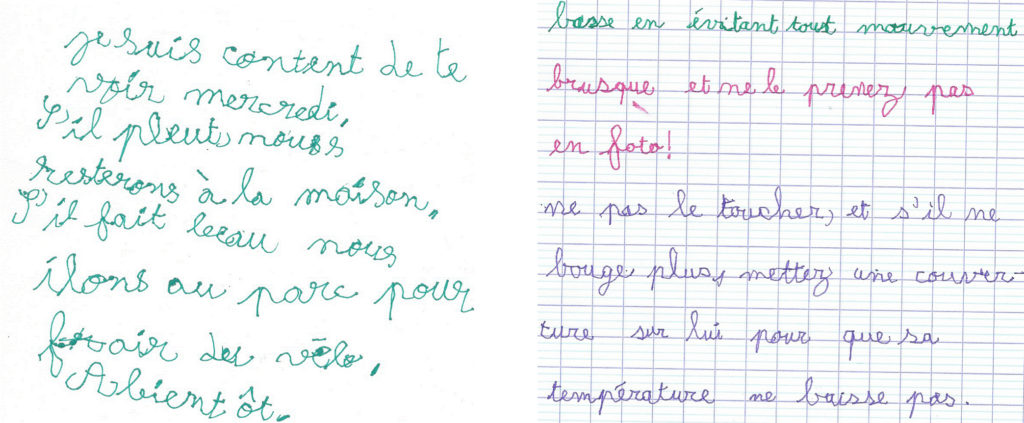 je suis content de te
voir mercredi.
S'il pleut nous
resterons à la maison.
S'il fait beau nous
ilons au parc pour
fair du vélo.
A bientôt.
basse en évitant tout mouvement
brusque et ne le prenez pas
en foto!
ne pas le toucher, et s'il ne
bouge plus, mettez une couver-
ture sur lui pour que sa
température ne baisse pas.